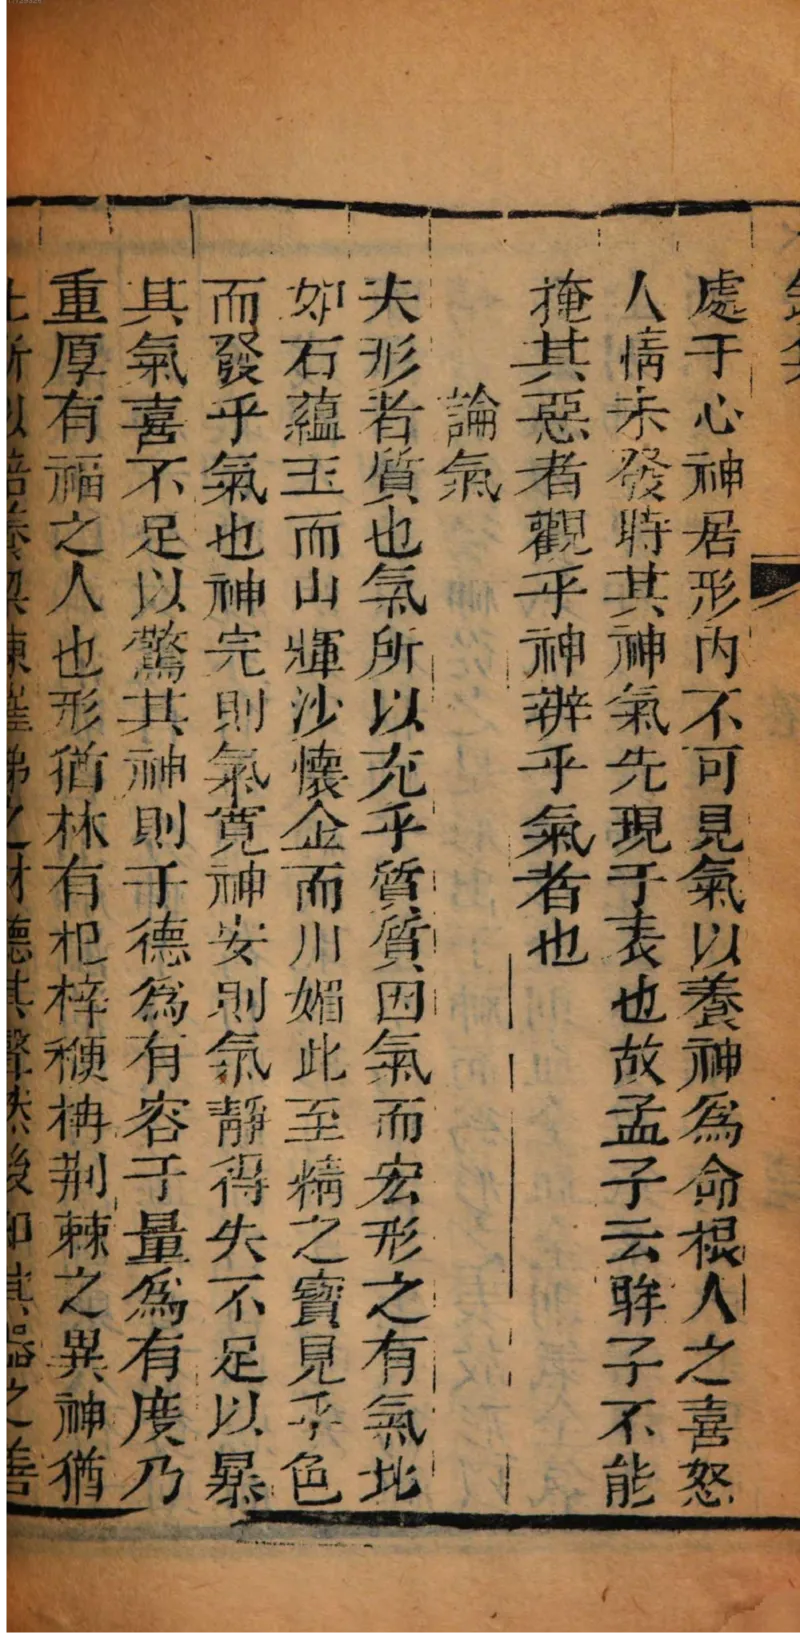 處于心神居形內不可見氣以養神爲命根人之喜怒
人情未發時其神氣先現于表也故孟子云眸子不能
掩其惡者觀乎神辨乎氣者也
論氣
夫形者質也氣所以充乎質質因氣而宏形之有氣比
如石蘊玉而山輝沙懷金而川媚此至精之寶見乎色
而發乎氣也神完則氣寬神安則氣靜得失不足以暴
其氣喜不足以驚其神則于德爲有容于量爲有度乃
重厚有福之人也形猶林有杞梓楩柟荆棘之異神猶
之材德其聲然後知其器之善